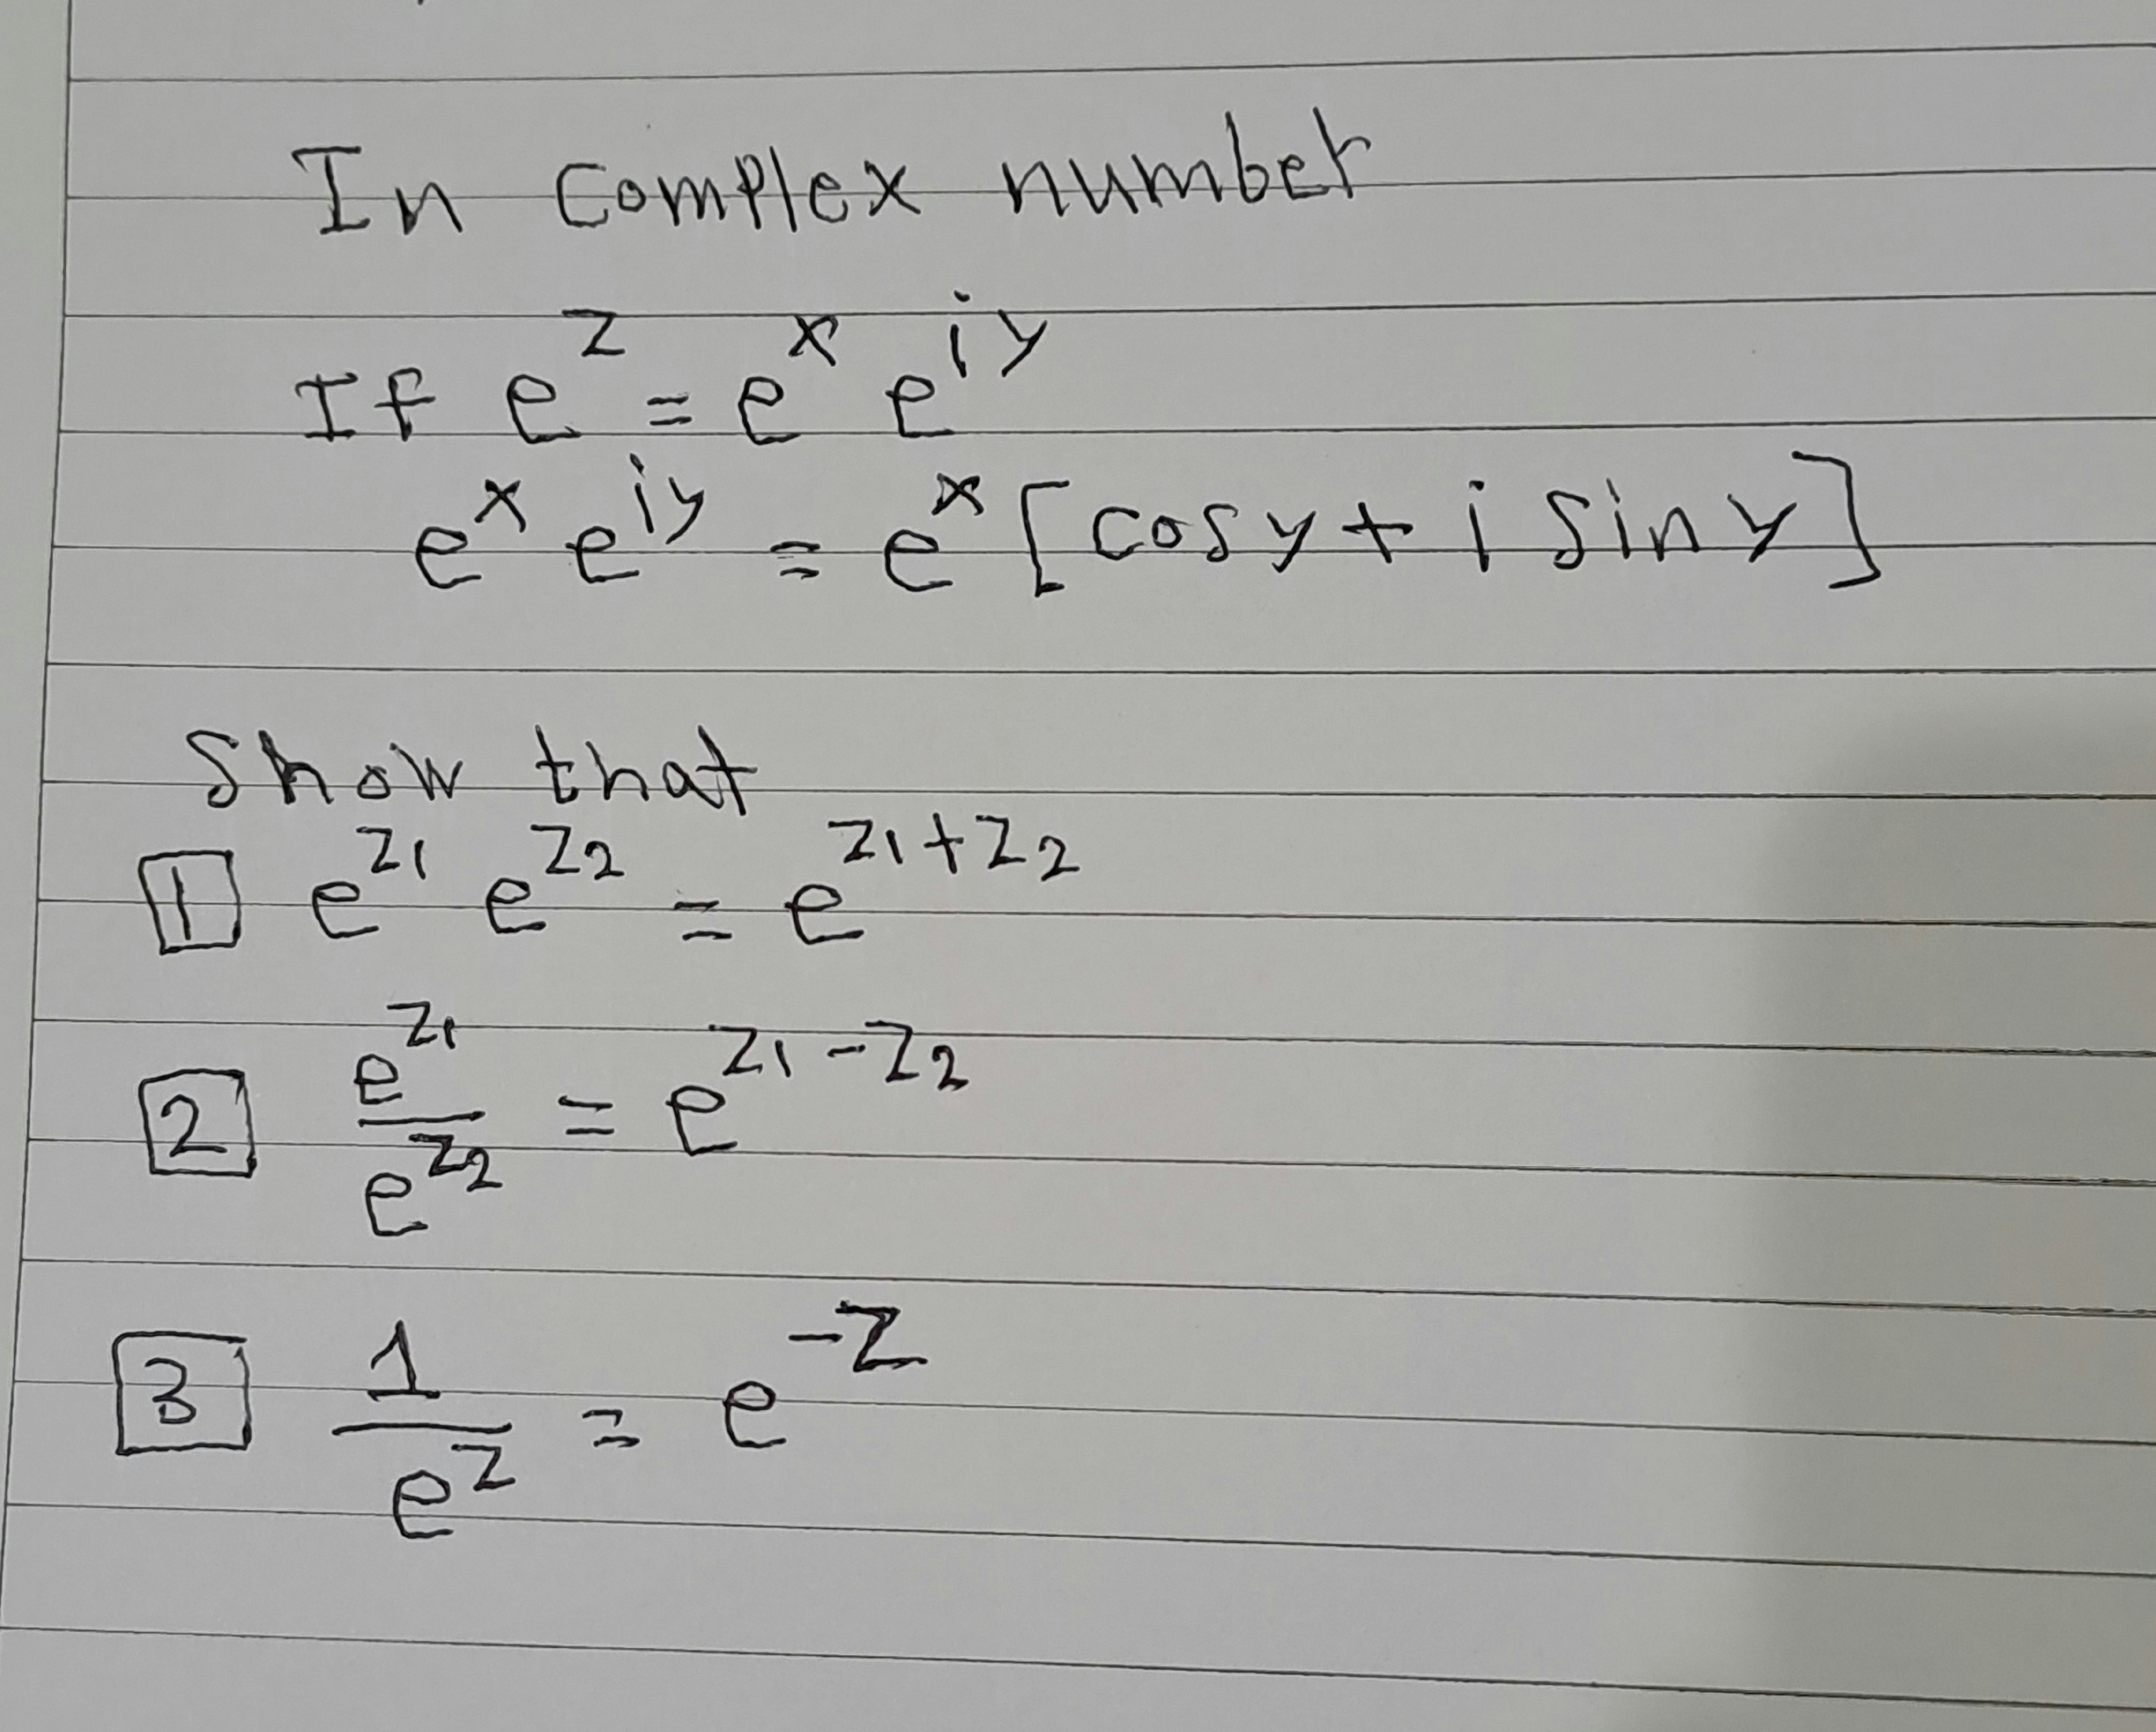 In complex number
If e^z = e^x e^iy
e^x e^iy = e^x [cosy + i siny]
Show that
1 e^z1 e^z2 = e^z1+z2
2 e^z1 / e^z2 = e^z1-z2
3 1 / e^z = e^-z